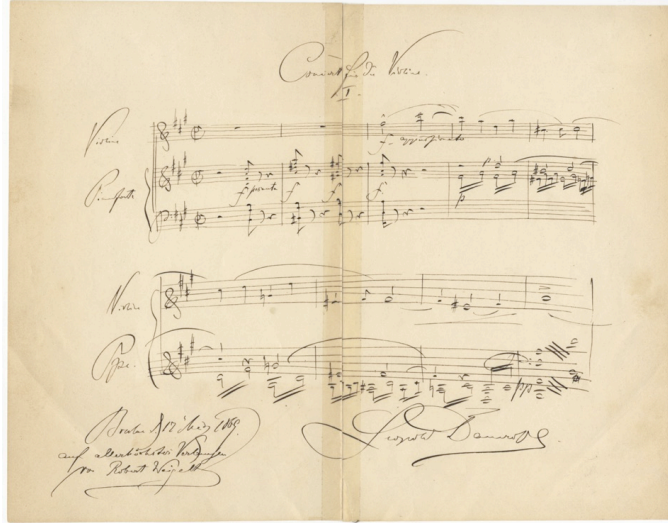 Concert für die Violine.
I.
Violine
f appassionato
Pianoforte
f pesante f f f p
Violine
Pfte.
pp
Breslau d. 12 März 1865
auf allerhöchstes Verlangen
von Robert Weigelt
Leopold Damrosch.